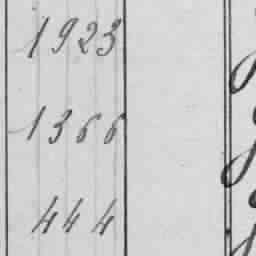 1923
1366
444